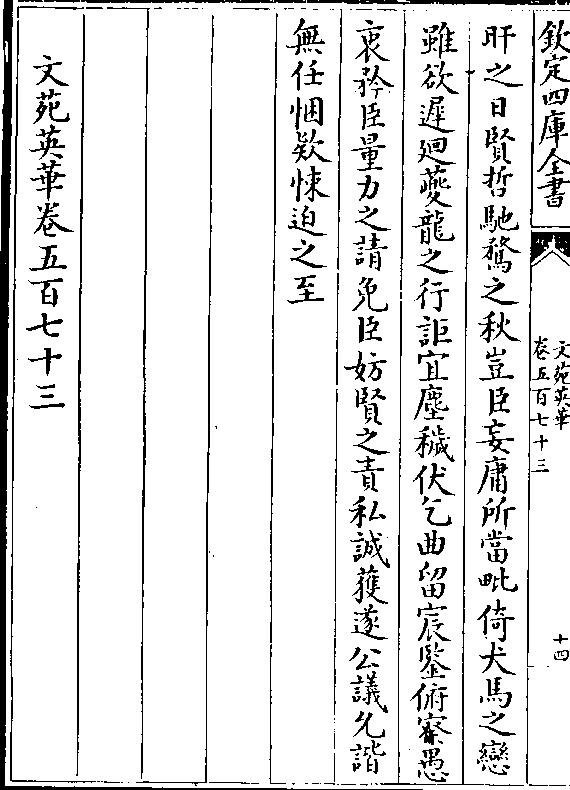 欽定四庫全書
文苑英華
卷五百七十三
十四
旰之日賢哲馳騖之秋豈臣妄庸所當毗倚犬馬之戀
雖欲遲迴夔龍之行詎宜塵穢伏乞曲留宸鑒俯察愚
衷矜臣量力之請免臣妨賢之責私誠獲遂公議允諧
無任悃欵悚迫之至
文苑英華卷五百七十三